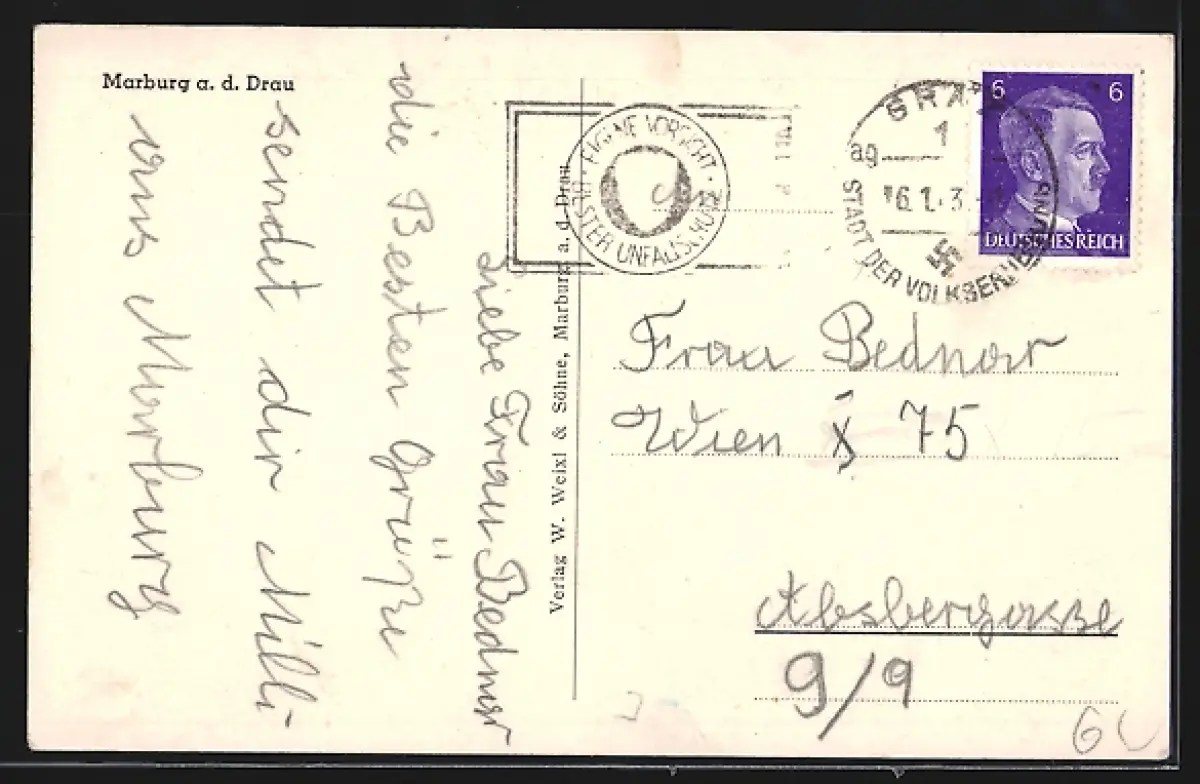 Marburg a. d. Drau
Liebe Frau Bednar
die Besten Grüße
sendet dir Milli
aus Marburg
Verlag W. Weixl & Söhne, Marburg a. d. Drau
EIGNE VORSICHT · BESTER UNFALLSCHUTZ
GRAZ
1
ag
16.1.43
STADT DER VOLKSERHEBUNG
6 6
DEUTSCHES REICH
Frau Bednar
Wien X 75
Absbergasse
9/9